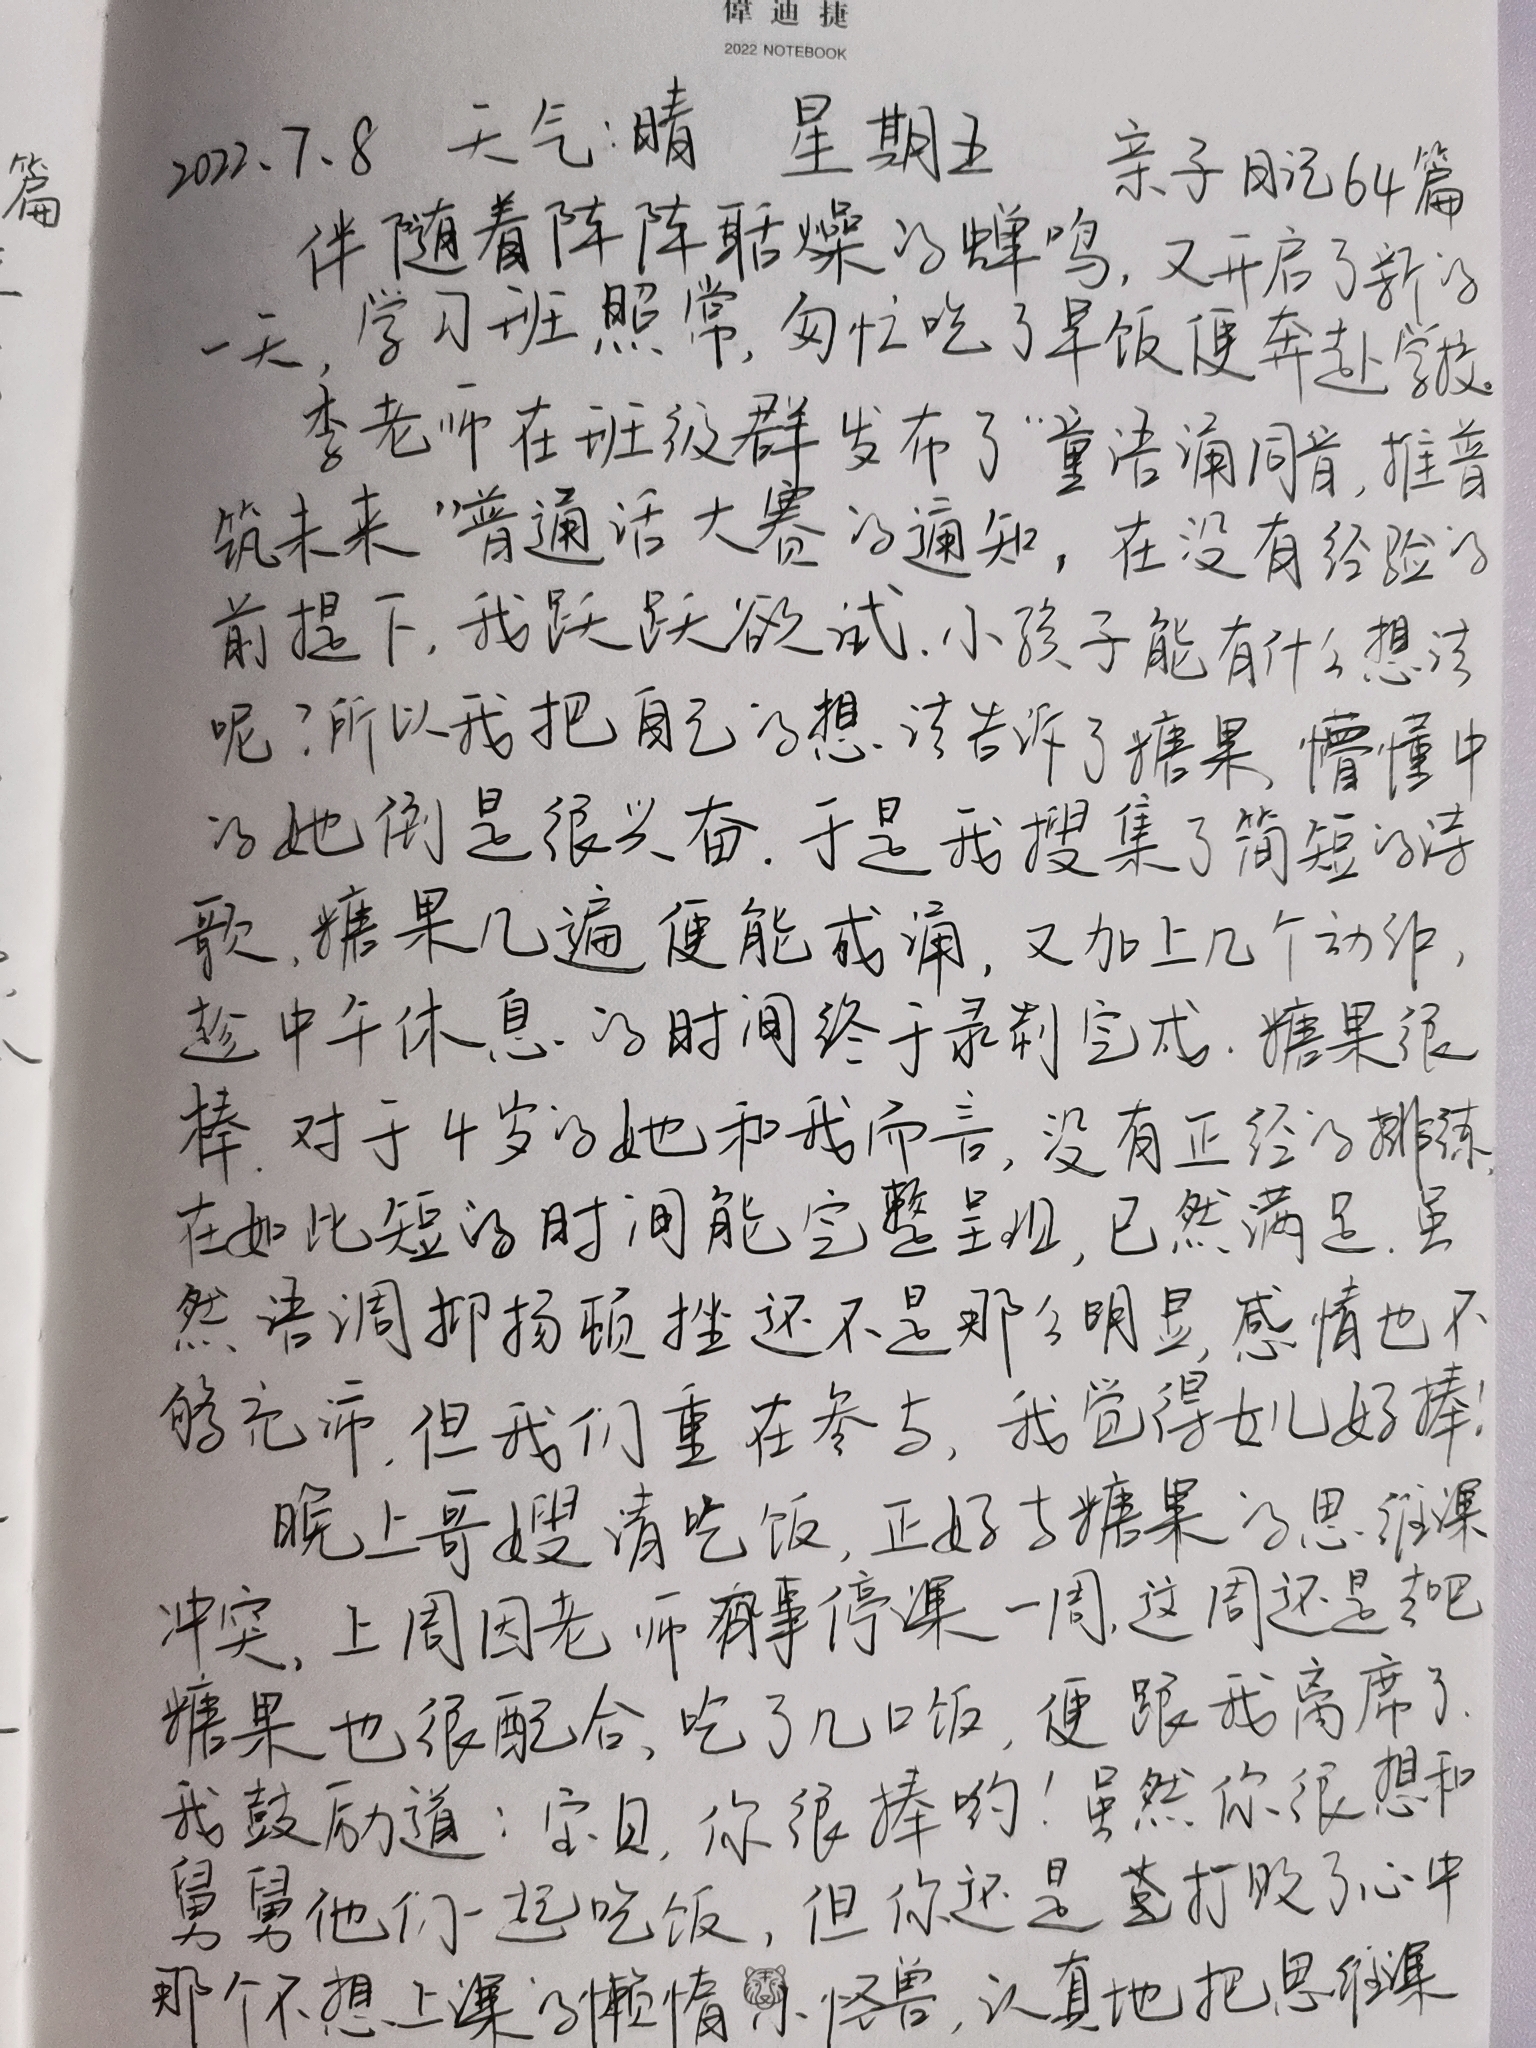 偉迪捷
2022 NOTEBOOK
篇
2022、7、8 天气:晴 星期五 亲子日记64篇
伴随着阵阵聒燥的蝉鸣,又开启了新的
一天,学习班照常,匆忙吃了早饭便奔赴学校。
李老师在班级群发布了“童语诵同音,推普
筑未来”普通话大赛的通知,在没有经验的
前提下,我跃跃欲试.小孩子能有什么想法
呢?所以我把自己的想法告诉了糖果,懵懂中
的她倒是很兴奋.于是我搜集了简短的诗
歌,糖果几遍便能成诵,又加上几个动作,
趁中午休息的时间终于录制完成.糖果很
棒.对于4岁的她和我而言,没有正经的排练,
在如此短的时间能完整呈现,已然满足.虽
然语调抑扬顿挫还不是那么明显,感情也不
够充沛.但我们重在参与,我觉得女儿好棒!
晚上哥嫂请吃饭,正好与糖果的思维课
冲突,上周因老师有事停课一周,这周还是去吧
糖果也很配合,吃了几口饭,便跟我离席了.
我鼓励道:宝贝,你很棒哟!虽然你很想和
舅舅他们一起吃饭,但你还是打败了心中
那个不想上课的懒惰小怪兽,认真地把思维课